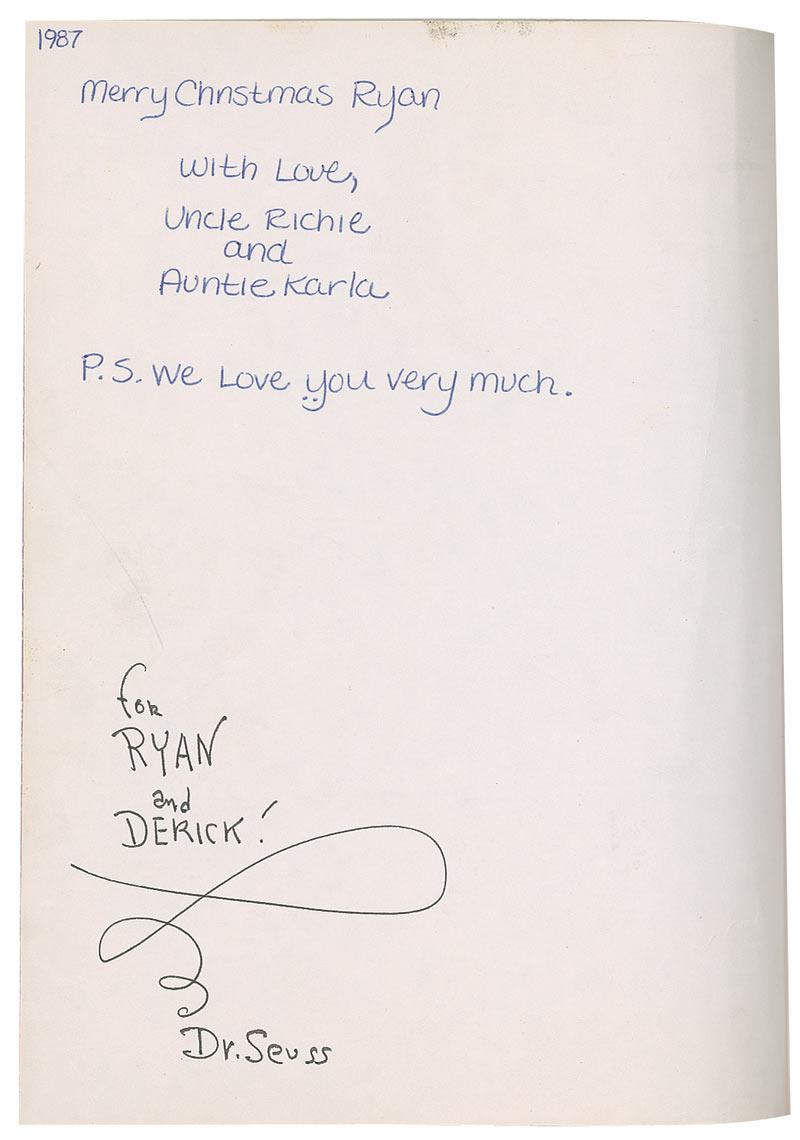 1987
Merry Christmas Ryan
With Love,
Uncle Richie
and
Auntie Karla
P.S. We Love you very much.
for
RYAN
and
DERICK!
Dr. Seuss